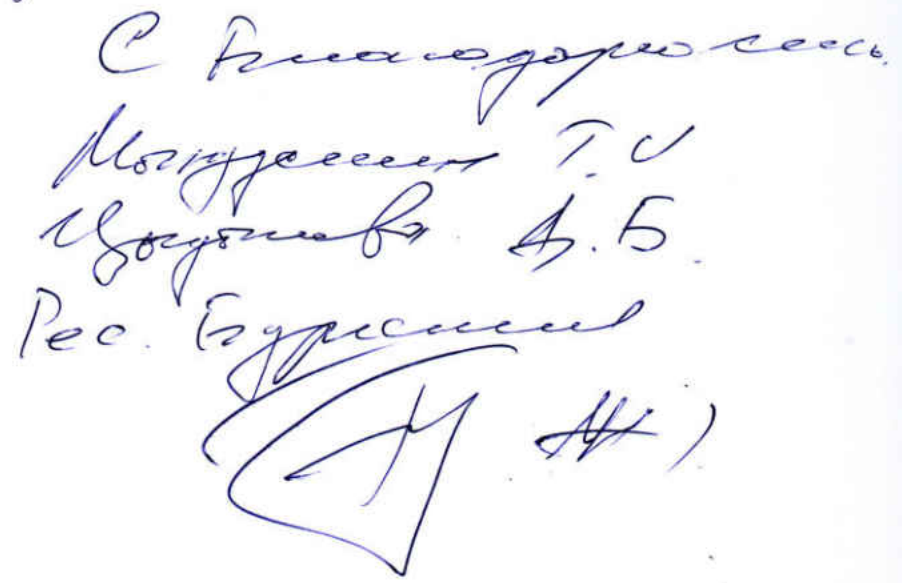 С Благодарностью
Т. И
Цыдыпова А. Б.
Рес. Бурятия